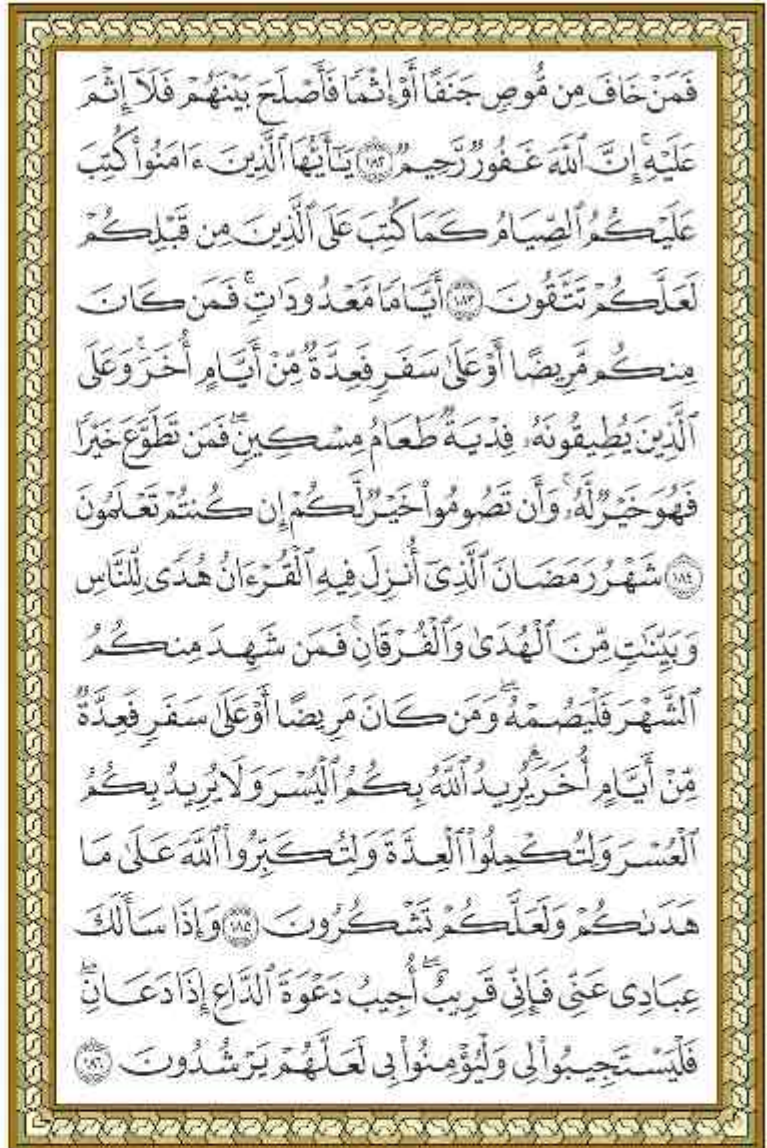 فَمَنْ خَافَ مِن مُّوصٍ جَنَفًا أَوْ إِثْمًا فَأَصْلَحَ بَيْنَهُمْ فَلَآ إِثْمَ
عَلَيْهِ ۚ إِنَّ ٱللَّهَ غَفُورٌ رَّحِيمٌ ١٨٢ يَـٰٓأَيُّهَا ٱلَّذِينَ ءَامَنُوا۟ كُتِبَ
عَلَيْكُمُ ٱلصِّيَامُ كَمَا كُتِبَ عَلَى ٱلَّذِينَ مِن قَبْلِكُمْ
لَعَلَّكُمْ تَتَّقُونَ ١٨٣ أَيَّامًا مَّعْدُودَٰتٍ ۚ فَمَن كَانَ
مِنكُم مَّرِيضًا أَوْ عَلَىٰ سَفَرٍ فَعِدَّةٌ مِّنْ أَيَّامٍ أُخَرَ ۚ وَعَلَى
ٱلَّذِينَ يُطِيقُونَهُۥ فِدْيَةٌ طَعَامُ مِسْكِينٍ ۖ فَمَن تَطَوَّعَ خَيْرًا
فَهُوَ خَيْرٌ لَّهُۥ ۚ وَأَن تَصُومُوا۟ خَيْرٌ لَّكُمْ إِن كُنتُمْ تَعْلَمُونَ
١٨٤ شَهْرُ رَمَضَانَ ٱلَّذِىٓ أُنزِلَ فِيهِ ٱلْقُرْءَانُ هُدًى لِّلنَّاسِ
وَبَيِّنَـٰتٍ مِّنَ ٱلْهُدَىٰ وَٱلْفُرْقَانِ ۚ فَمَن شَهِدَ مِنكُمُ
ٱلشَّهْرَ فَلْيَصُمْهُ ۖ وَمَن كَانَ مَرِيضًا أَوْ عَلَىٰ سَفَرٍ فَعِدَّةٌ
مِّنْ أَيَّامٍ أُخَرَ ۗ يُرِيدُ ٱللَّهُ بِكُمُ ٱلْيُسْرَ وَلَا يُرِيدُ بِكُمُ
ٱلْعُسْرَ وَلِتُكْمِلُوا۟ ٱلْعِدَّةَ وَلِتُكَبِّرُوا۟ ٱللَّهَ عَلَىٰ مَا
هَدَىٰكُمْ وَلَعَلَّكُمْ تَشْكُرُونَ ١٨٥ وَإِذَا سَأَلَكَ
عِبَادِى عَنِّى فَإِنِّى قَرِيبٌ ۖ أُجِيبُ دَعْوَةَ ٱلدَّاعِ إِذَا دَعَانِ ۖ
فَلْيَسْتَجِيبُوا۟ لِى وَلْيُؤْمِنُوا۟ بِى لَعَلَّهُمْ يَرْشُدُونَ ١٨٦